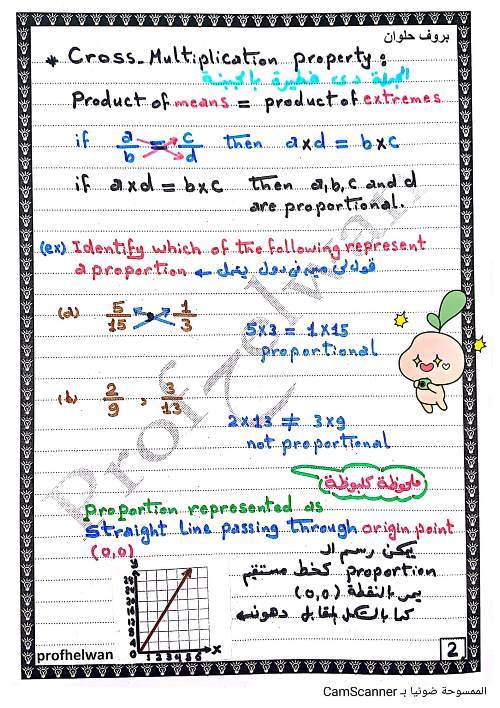 بروف حلوان
* Cross-Multiplication property:
الجملة دى فطيرة بالجبنة
Product of means = product of extremes
if a/b = c/d then a×d = b×c
if a×d = b×c then a,b,c and d
are proportional.
(ex) Identify which of the following represent
a proportion ← قولى مين فى دول يمثل
(a) 5/15 1/3
5×3 = 1×15
proportional
(b) 2/9 , 3/13
2×13 ≠ 3×9
not proportional
ملحوظة كلبوظة
proportion represented as
straight Line passing through origin point
(0,0)
يمكن رسم الـ
proportion كخط مستقيم
يمر بالنقطة (0,0)
كما بالشكل المقابل
y
x
0 1 2 3 4 5 6
Profzelwan
profhelwan
2
الممسوحة ضوئيا بـ CamScanner